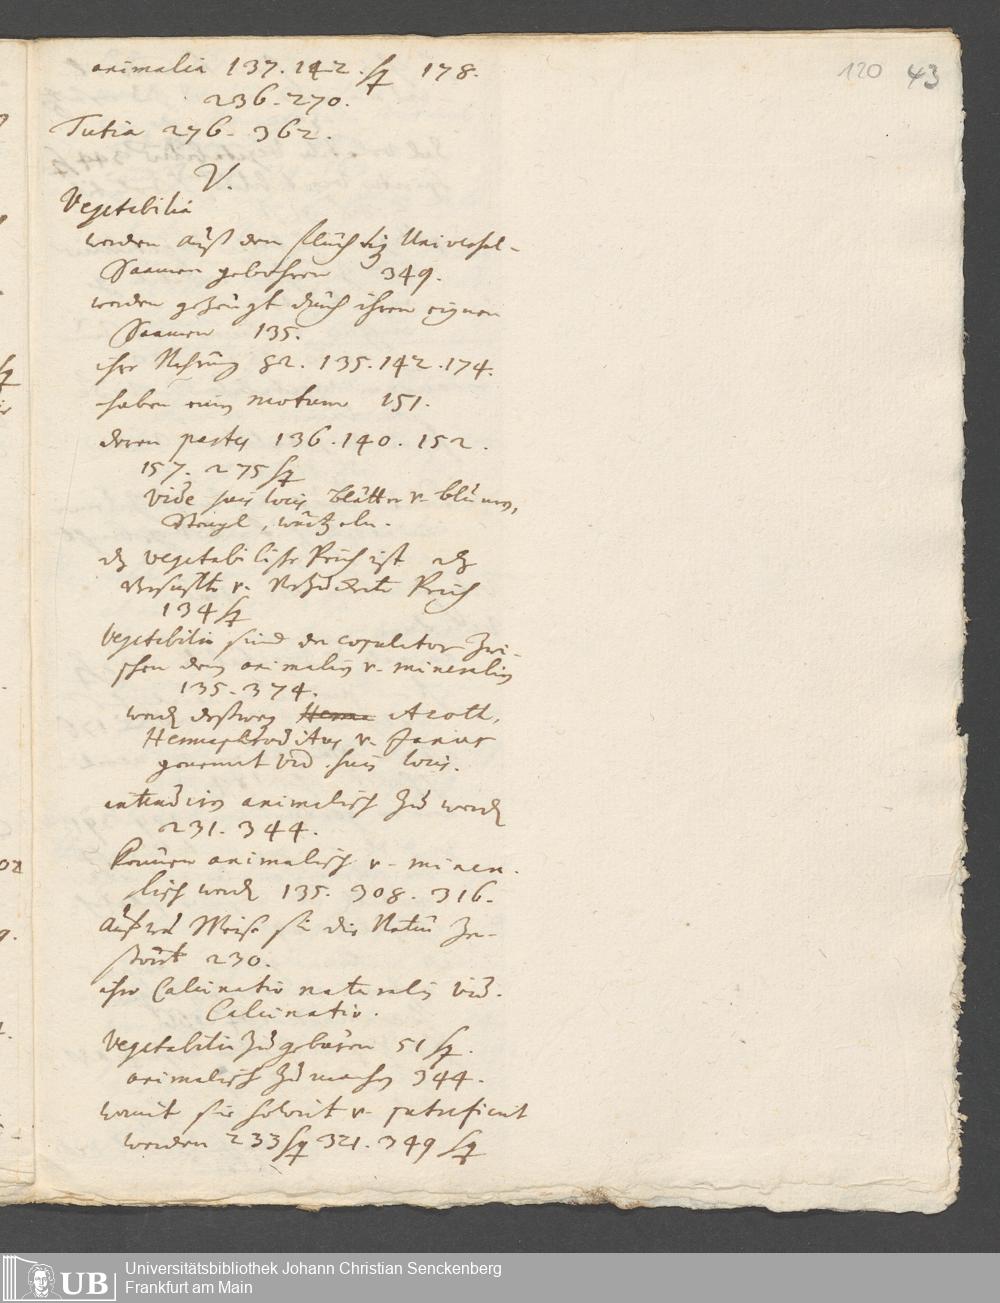 animalia 137. 142. sq 178.
236. 270.
120 43
Tutia 276. 362.
V.
Vegetabilia
werden auß dem flüchtig Universal-
Saamen gebohren 349.
werden gezeugt durch ihren eignen
Saamen 135.
ihre Nahrung 82. 135. 142. 174.
haben einen motum 151.
deren partes 136. 140. 152.
157. 275 sq
vide suis locis Blätter v. blumen,
Stengl, wurzeln.
dz vegetabilische Reich ist
v. Reich
134 sq
Vegetabilia sind der copulator zwi-
schen dem animalis v. mineralis
135. 374.
werden deßwegen Azoth,
Hermaphroditus v. Janus
genennt vid. suis locis.
animalisch zu werden
231. 344.
können animalisch v. minera-
lisch werden 135. 308. 316.
auf was Weise sie die Natur zer-
stört 230.
ihre Calcinatio naturalis vid.
Calcinatio.
Vegetabilia zu gebären 51 sq.
animalisch zu machen 344.
womit sie solvirt v. putrificirt
werden 233 sq 321. 349 sq
UB
Universitätsbibliothek Johann Christian Senckenberg
Frankfurt am Main